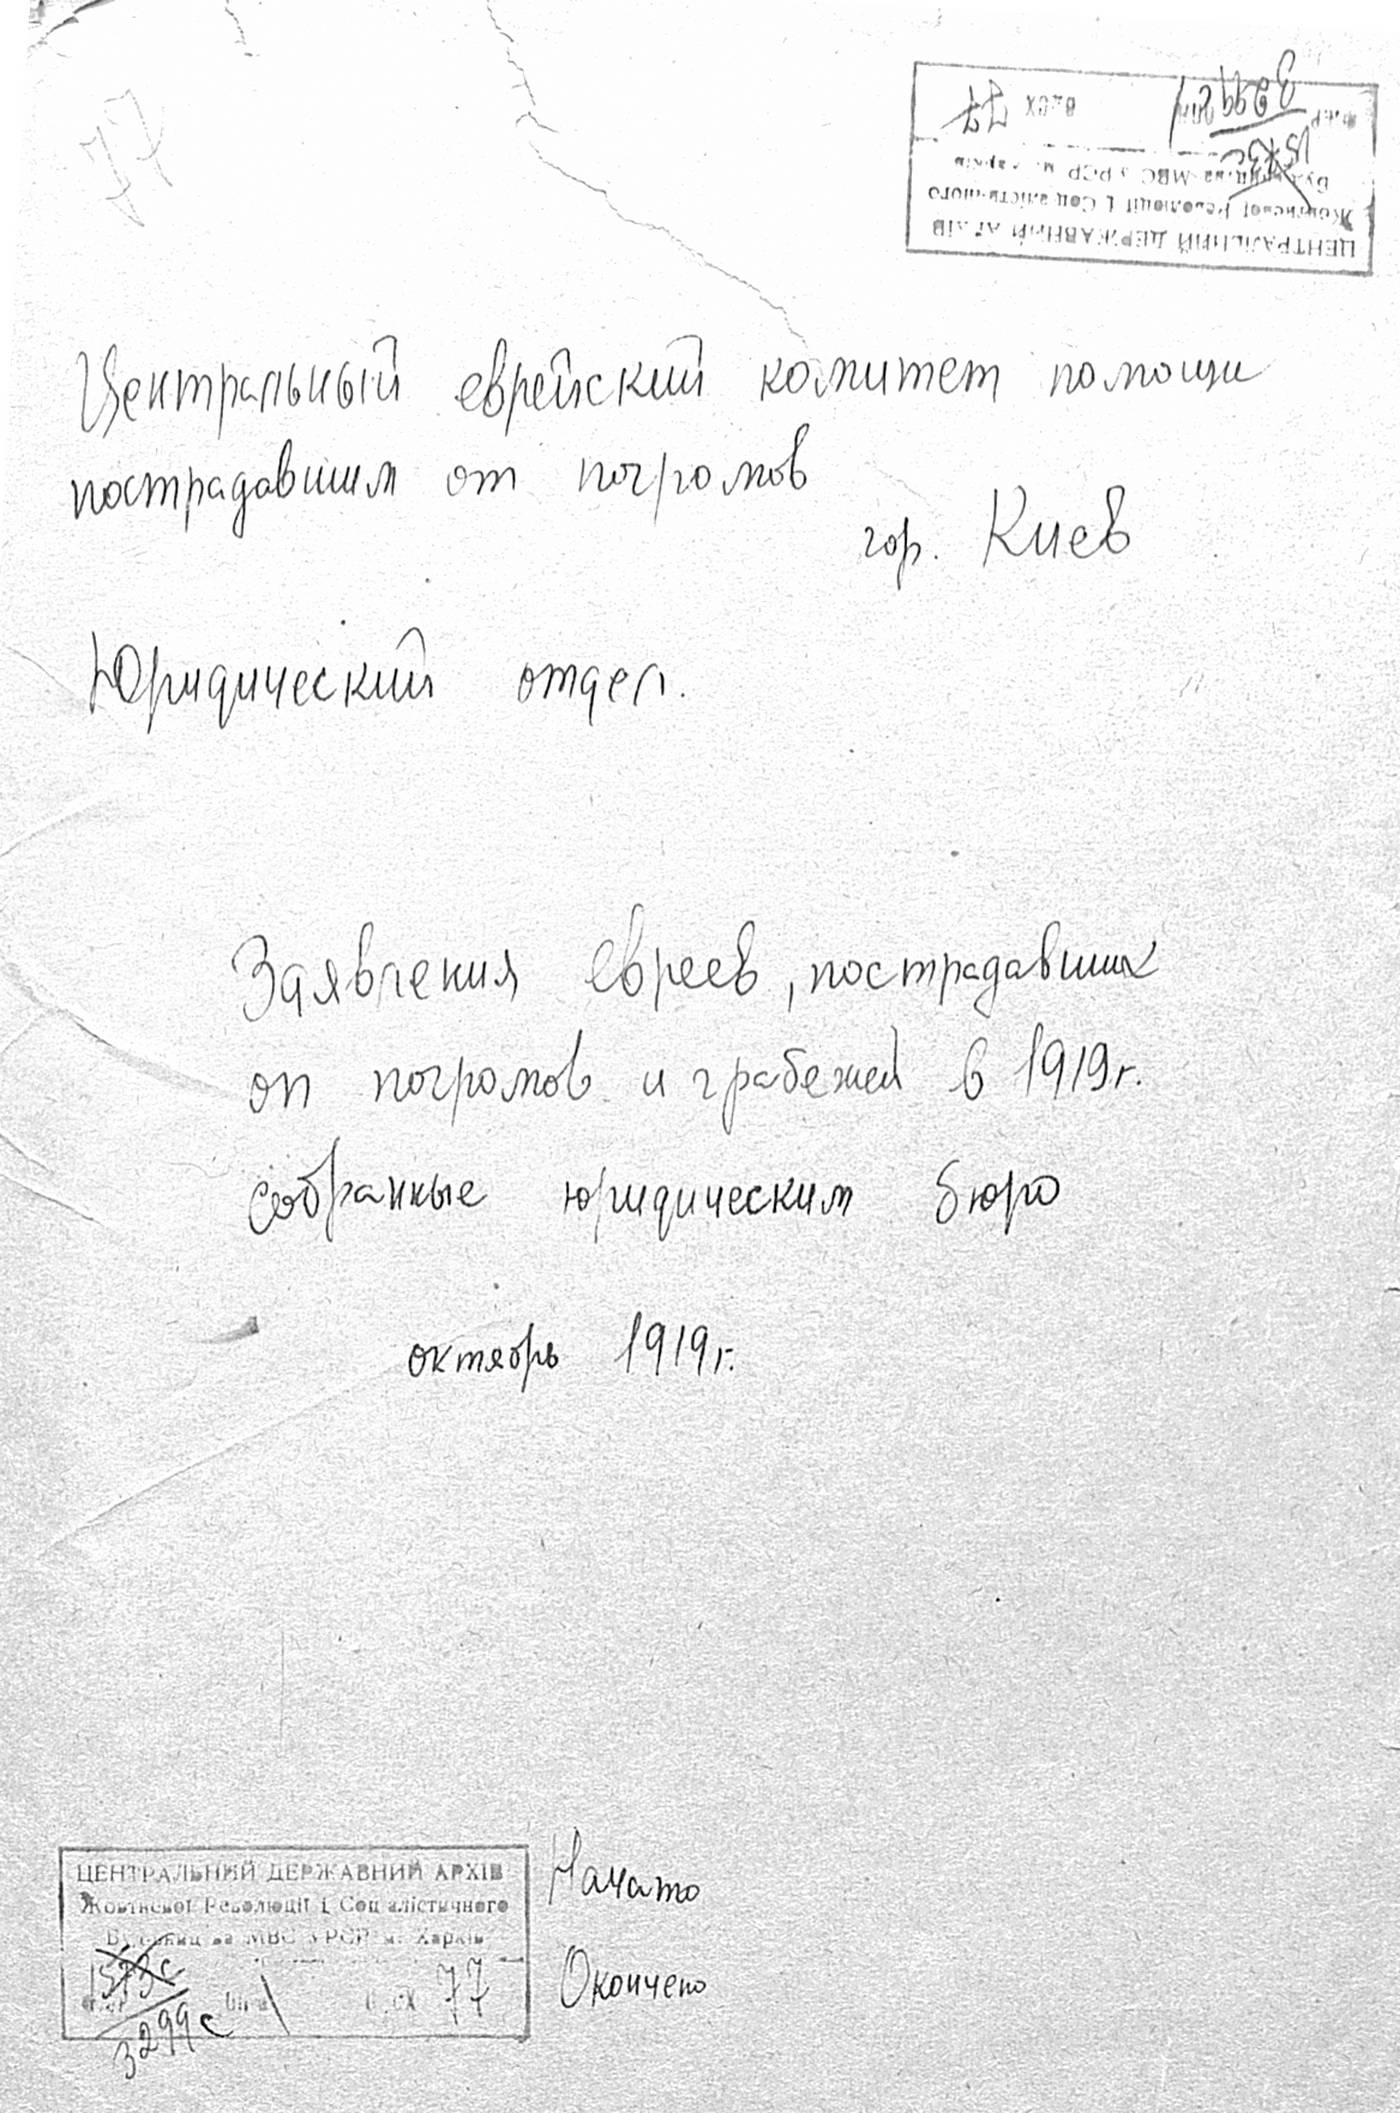 77
ЦЕНТРАЛЬНИЙ ДЕРЖАВНИЙ АРХІВ
Жовтневої Революції і Соціалістичного
Будівництва МВС УРСР м. Харків
1573с
3299с
77
Центральный еврейский комитет помощи
пострадавшим от погромов
гор. Киев
Юридический отдел.
Заявления евреев, пострадавших
от погромов и грабежей в 1919г.
собранные юридическим бюро
октябрь 1919г.
ЦЕНТРАЛЬНИЙ ДЕРЖАВНИЙ АРХІВ
Жовтневої Революції і Соціалістичного
Будівництва МВС УРСР м. Харків
1573с
77
3299с
Начато
Окончено